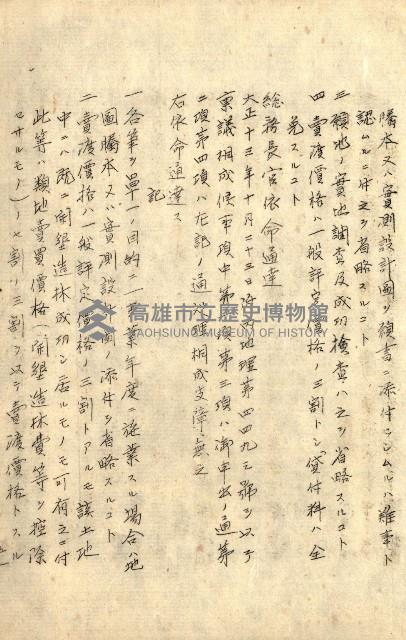 謄本又ハ實測設計圖ヲ願書ニ添付セシムルハ難事ト
認ムルニ付之ヲ省略スルコト
三 願地ノ實地調査及成功檢査ハ之ヲ省略スルコト
四 賣渡價格ハ一般評定價格ノ三割トシ貸付料ハ全
免スルコト
總務長官依命通達
大正十三年十月二十三日 地理第四四九三號ヲ以テ
稟議相成候事項中第 第三項ハ御申出ノ通第
二項第四項ハ左記ノ通 相成支障無之
右依命通達ス
記
一 各筆ヲ單一ノ目的ニ一事業年度ニ施業スル場合ハ地
圖謄本又ハ實測設計圖ノ添付ヲ省略スルコト
二 賣渡價格ハ一般評定價格ノ三割トアルモ該土地
中ニハ既ニ開墾造林成功シ居ルモノモ可有之ニ付
此等ハ類地賣買價格(開墾造林費等ヲ控除
セサルモノ)ノ七割ノ三割ヲ以テ賣渡價格トスル
高雄市立歷史博物館
KAOHSIUNG MUSEUM OF HISTORY